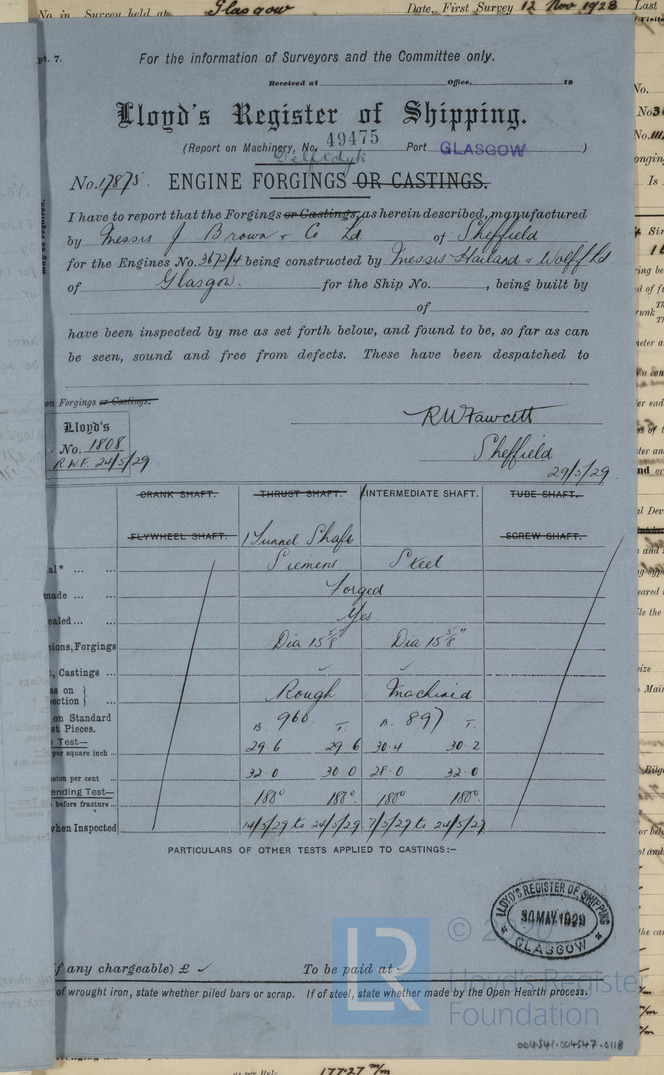 No. in Survey held at Glasgow Date, First Survey 12 Nov 1928 Last
pt. 7.
For the information of Surveyors and the Committee only.
Received at Office, 19
Lloyd's Register of Shipping.
(Report on Machinery, No. 49475 Port GLASGOW )
Delfdyk
No. 17875. ENGINE FORGINGS OR CASTINGS.
I have to report that the Forgings or Castings, as herein described, manufactured
by Messrs J Brown & Co. Ld of Sheffield
for the Engines No. 3673/4 being constructed by Messrs Harland & Wolff Ld
of Glasgow. for the Ship No. , being built by
of
have been inspected by me as set forth below, and found to be, so far as can
be seen, sound and free from defects. These have been despatched to
on Forgings or Castings.
Lloyd's
No. 1808
R.W.F. 24/5/29
RW Fawcett
Sheffield
29/5/29.
CRANK SHAFT. THRUST SHAFT. INTERMEDIATE SHAFT. TUBE SHAFT.
FLYWHEEL SHAFT. 1 Tunnel Shaft SCREW SHAFT.
al" ... ... Siemens Steel
made ... ... Forged
ealed ... ... Yes
sions, Forgings Dia 15 5/8" Dia 15 5/8"
, Castings ... ✓ ✓
ss on }
ection } ... Rough Machined
on Standard
st Pieces. B. 960 T. B. 897 T.
Test—
per square inch ... 29.6 29.6 30.4 30.2
sion per cent ... 32.0 30.0 28.0 32.0
ending Test—
before fracture ... 180° 180° 180° 180°
when Inspected 14/5/29 to 24/5/29 7/5/29 to 24/5/29
PARTICULARS OF OTHER TESTS APPLIED TO CASTINGS:—
LLOYD'S REGISTER OF SHIPPING
30 MAY 1929
GLASGOW
LR
Lloyd's Register
Foundation
if any chargeable) £ ✓ To be paid at
of wrought iron, state whether piled bars or scrap. If of steel, state whether made by the Open Hearth process.
004541-004547-0118
as per Rule 177.27 m/m